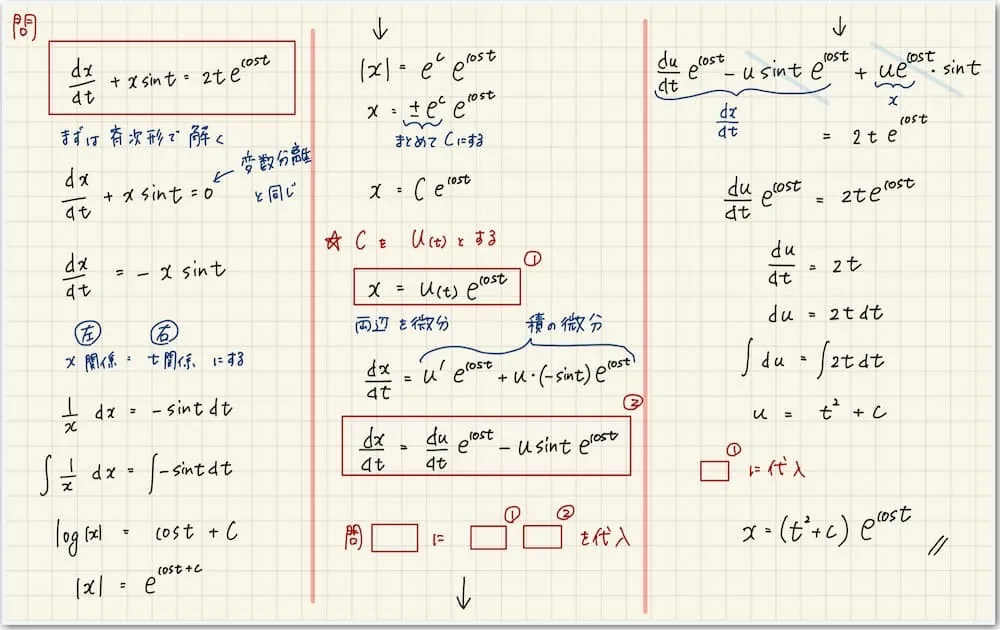 問
dx/dt + x sint = 2t e^cost
まずは 斉次形で 解く
dx/dt + x sint = 0 ← 変数分離
と同じ
dx/dt = - x sint
左 右
x 関係 = t関係 にする
1/x dx = - sint dt
∫ 1/x dx = ∫ -sint dt
log|x| = cost + C
|x| = e^cost+c
↓
|x| = e^c e^cost
x = ± e^c e^cost
まとめて Cにする
x = C e^cost
☆ C を u(t) とする
x = u(t) e^cost ①
両辺を微分 積の微分
dx/dt = u' e^cost + u・(-sint) e^cost
②
dx/dt = du/dt e^cost - u sint e^cost
問 □ に □① □② を代入
↓
↓
du/dt e^cost - u sint e^cost + u e^cost・sint
dx/dt x
= 2t e^cost
du/dt e^cost = 2t e^cost
du/dt = 2t
du = 2t dt
∫ du = ∫ 2t dt
u = t² + c
□① に代入
x = (t²+c) e^cost //